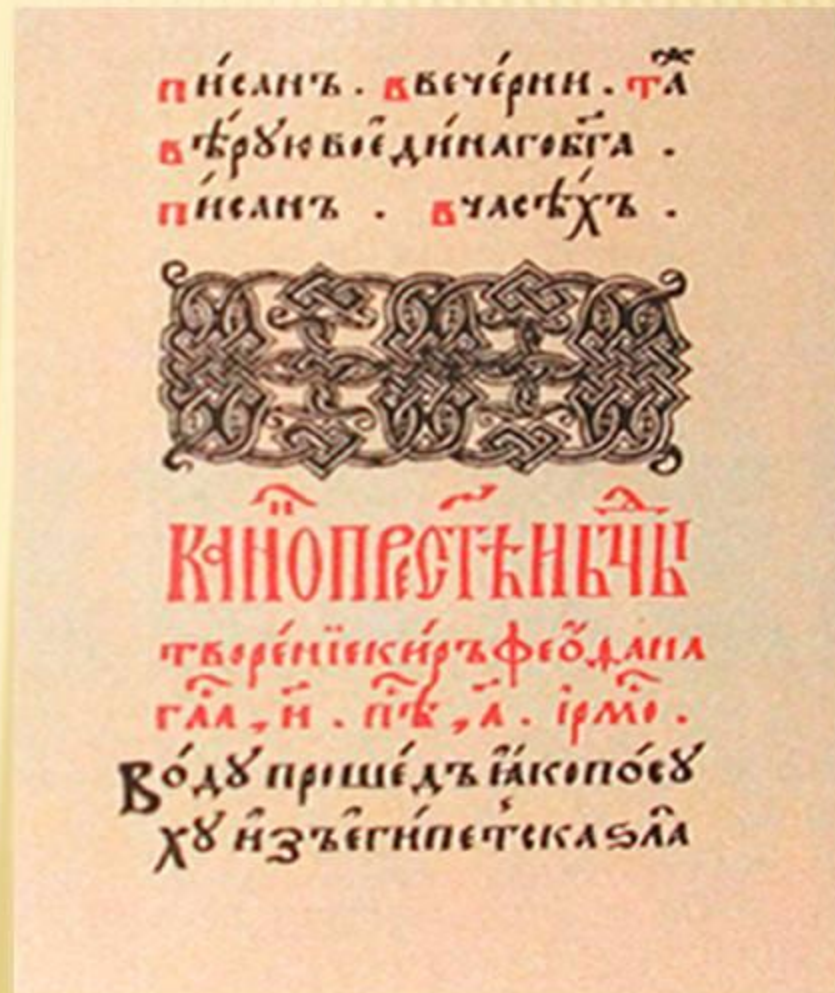 пи́санъ . ввече́рни . та́ж
вѣ́рꙋювоеди́нагобг҃а .
пи́санъ . вчасѣ́хъ .
КАНО҃ПРЕСТ҃ѢНЬЧ҃Ы
творе́нїеки́ръфео̑фана
гла҃ , и҃ . пѣ҃ , а҃ . ірмо҃ .
Во́дꙋпроше́дъꙗ҆́копо́сꙋ
хꙋ и҆зъе҆ги́петскаѕла҃